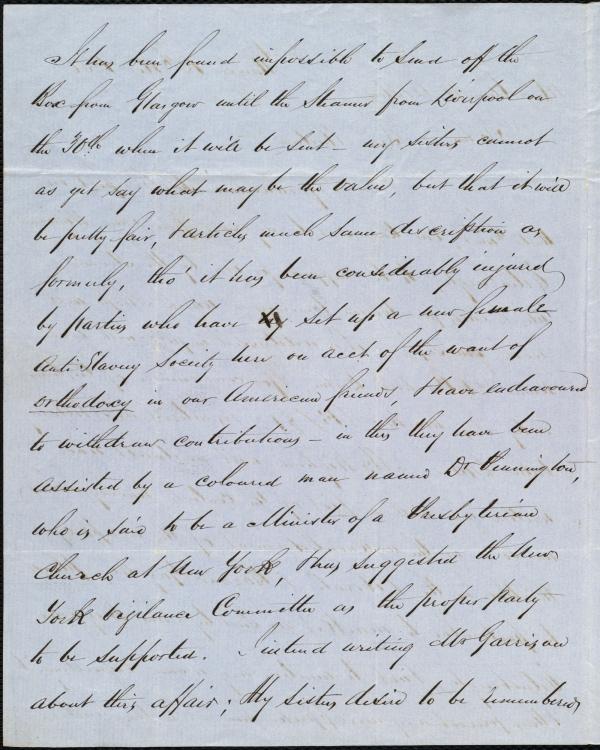 It has been found impossible to send off the
Box from Glasgow until the Steamer from Liverpool on
the 30th when it will be sent - my sisters cannot
as yet say what may be the value, but that it will
be pretty fair, & articles much same description as
formerly, tho' it has been considerably injured
by parties who have set up a new female
Anti Slavery Society here on acct of the want of
orthodoxy in our American friends, & have endeavoured
to withdraw contributions - in this they have been
assisted by a coloured man named Dr Pennington,
who is said to be a Minister of a Presbyterian
Church at New York, & has suggested the New
York Vigilance Committee as the proper party
to be supported. I intend writing Mr Garrison
about this affair; My sisters desire to be remembered